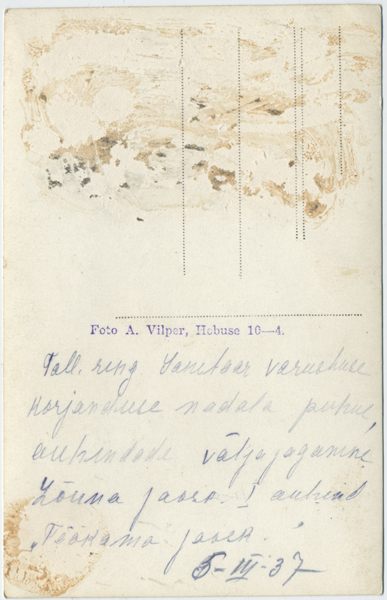 Foto A. Vilper, Hobuse 10—4.
Tall. ring. Sanitaar varustuse
korjanduse nädala puhul,
auhindade väljajagamine
Lõuna jaosk. I auhind
„Töökama jaosk."
5-III-37